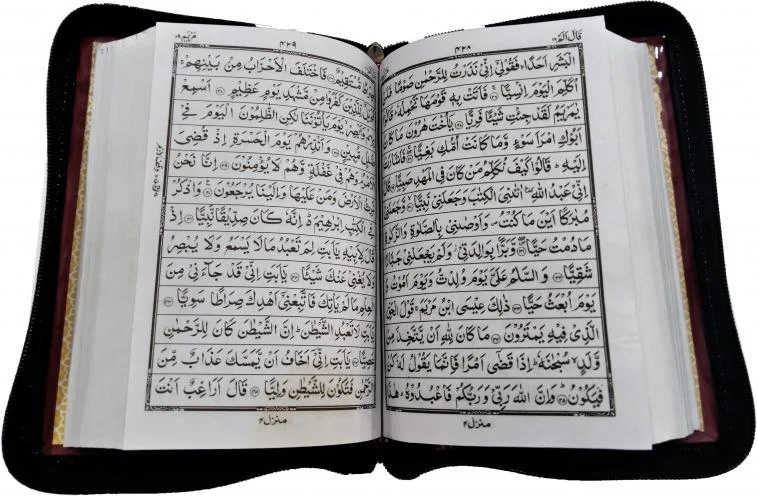 قَالَ اَلَمْ ١٦
٤٢٨
الْبَشَرِ اَحَدًا ۙ فَقُوْلِيْٓ اِنِّيْ نَذَرْتُ لِلرَّحْمٰنِ صَوْمًا فَلَنْ
اُكَلِّمَ الْيَوْمَ اِنْسِيًّا ﴿٢٦﴾ فَاَتَتْ بِهٖ قَوْمَهَا تَحْمِلُهٗ ؕ قَالُوْا
يٰمَرْيَمُ لَقَدْ جِئْتِ شَيْـًٔا فَرِيًّا ﴿٢٧﴾ يٰٓاُخْتَ هٰرُوْنَ مَا كَانَ
اَبُوْكِ امْرَاَ سَوْءٍ وَّمَا كَانَتْ اُمُّكِ بَغِيًّا ﴿٢٨﴾ فَاَشَارَتْ
اِلَيْهِ ؕ قَالُوْا كَيْفَ نُكَلِّمُ مَنْ كَانَ فِي الْمَهْدِ صَبِيًّا ﴿٢٩﴾ قَالَ
اِنِّيْ عَبْدُ اللّٰهِ ؕ اٰتٰىنِيَ الْكِتٰبَ وَجَعَلَنِيْ نَبِيًّا ﴿٣٠﴾ وَّجَعَلَنِيْ
مُبٰرَكًا اَيْنَ مَا كُنْتُ ۪ وَاَوْصٰنِيْ بِالصَّلٰوةِ وَالزَّكٰوةِ
مَا دُمْتُ حَيًّا ﴿٣١﴾ وَّبَرًّۢا بِوَالِدَتِيْ ؗ وَلَمْ يَجْعَلْنِيْ جَبَّارًا
شَقِيًّا ﴿٣٢﴾ وَالسَّلٰمُ عَلَيَّ يَوْمَ وُلِدْتُّ وَيَوْمَ اَمُوْتُ وَ
يَوْمَ اُبْعَثُ حَيًّا ﴿٣٣﴾ ذٰلِكَ عِيْسَى ابْنُ مَرْيَمَ ۚ قَوْلَ الْحَقِّ
الَّذِيْ فِيْهِ يَمْتَرُوْنَ ﴿٣٤﴾ مَا كَانَ لِلّٰهِ اَنْ يَّتَّخِذَ مِنْ
وَّلَدٍ ۙ سُبْحٰنَهٗ ؕ اِذَا قَضٰٓى اَمْرًا فَاِنَّمَا يَقُوْلُ لَهٗ كُنْ
فَيَكُوْنُ ﴿٣٥﴾ وَاِنَّ اللّٰهَ رَبِّيْ وَرَبُّكُمْ فَاعْبُدُوْهُ ؕ هٰذَا
منزل ٤
مَرْيَم ١٩
٤٢٩
صِرَاطٌ مُّسْتَقِيْمٌ ﴿٣٦﴾ فَاخْتَلَفَ الْاَحْزَابُ مِنْۢ بَيْنِهِمْ ۚ
فَوَيْلٌ لِّلَّذِيْنَ كَفَرُوْا مِنْ مَّشْهَدِ يَوْمٍ عَظِيْمٍ ﴿٣٧﴾ اَسْمِعْ
بِهِمْ وَاَبْصِرْ ۙ يَوْمَ يَاْتُوْنَنَا لٰكِنِ الظّٰلِمُوْنَ الْيَوْمَ فِيْ
ضَلٰلٍ مُّبِيْنٍ ﴿٣٨﴾ وَاَنْذِرْهُمْ يَوْمَ الْحَسْرَةِ اِذْ قُضِيَ
الْاَمْرُ ۘ وَهُمْ فِيْ غَفْلَةٍ وَّهُمْ لَا يُؤْمِنُوْنَ ﴿٣٩﴾ اِنَّا نَحْنُ
نَرِثُ الْاَرْضَ وَمَنْ عَلَيْهَا وَاِلَيْنَا يُرْجَعُوْنَ ﴿٤٠﴾ وَاذْكُرْ
فِي الْكِتٰبِ اِبْرٰهِيْمَ ؕ اِنَّهٗ كَانَ صِدِّيْقًا نَّبِيًّا ﴿٤١﴾ اِذْ
قَالَ لِاَبِيْهِ يٰٓاَبَتِ لِمَ تَعْبُدُ مَا لَا يَسْمَعُ وَلَا يُبْصِرُ
وَلَا يُغْنِيْ عَنْكَ شَيْـًٔا ﴿٤٢﴾ يٰٓاَبَتِ اِنِّيْ قَدْ جَآءَنِيْ مِنَ
الْعِلْمِ مَا لَمْ يَاْتِكَ فَاتَّبِعْنِيْٓ اَهْدِكَ صِرَاطًا سَوِيًّا ﴿٤٣﴾
يٰٓاَبَتِ لَا تَعْبُدِ الشَّيْطٰنَ ؕ اِنَّ الشَّيْطٰنَ كَانَ لِلرَّحْمٰنِ
عَصِيًّا ﴿٤٤﴾ يٰٓاَبَتِ اِنِّيْٓ اَخَافُ اَنْ يَّمَسَّكَ عَذَابٌ مِّنَ
الرَّحْمٰنِ فَتَكُوْنَ لِلشَّيْطٰنِ وَلِيًّا ﴿٤٥﴾ قَالَ اَرَاغِبٌ اَنْتَ
منزل ٤